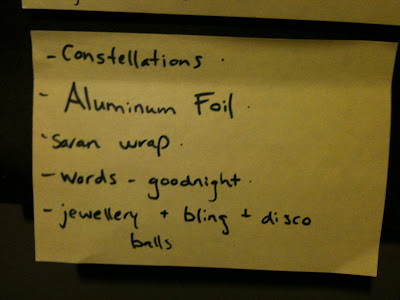 - Constellations .
- Aluminum Foil .
- Saran wrap .
- words - goodnight .
- jewellery + bling + disco
balls